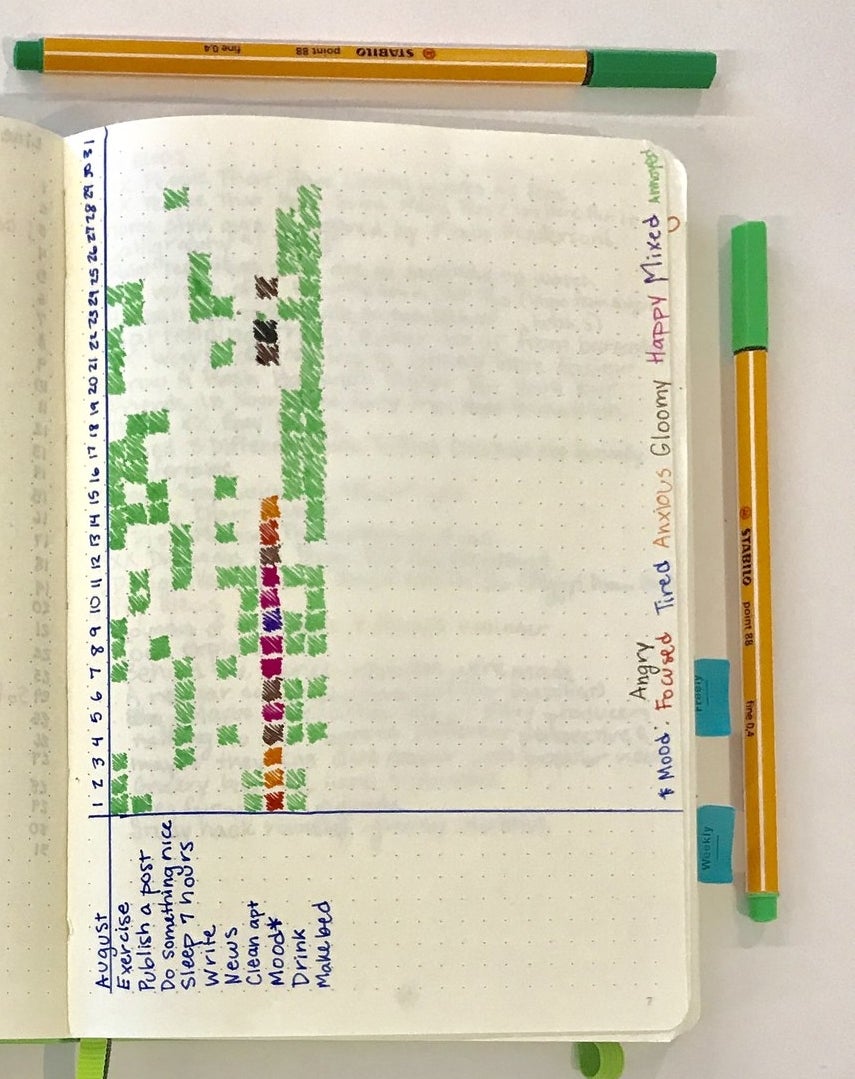 August 1 2 3 4 5 6 7 8 9 10 11 12 13 14 15 16 17 18 19 20 21 22 23 24 25 26 27 28 29 30 31
Exercise
Publish a post
Do something nice
Sleep 7 hours
Write
News
Clean apt
Mood*
Drink
Make bed
Angry
* Mood: Focused Tired Anxious Gloomy Happy Mixed Annoyed
7
Weekly
STABILO point 88 fine 0.4
STABILO point 88 fine 0.4